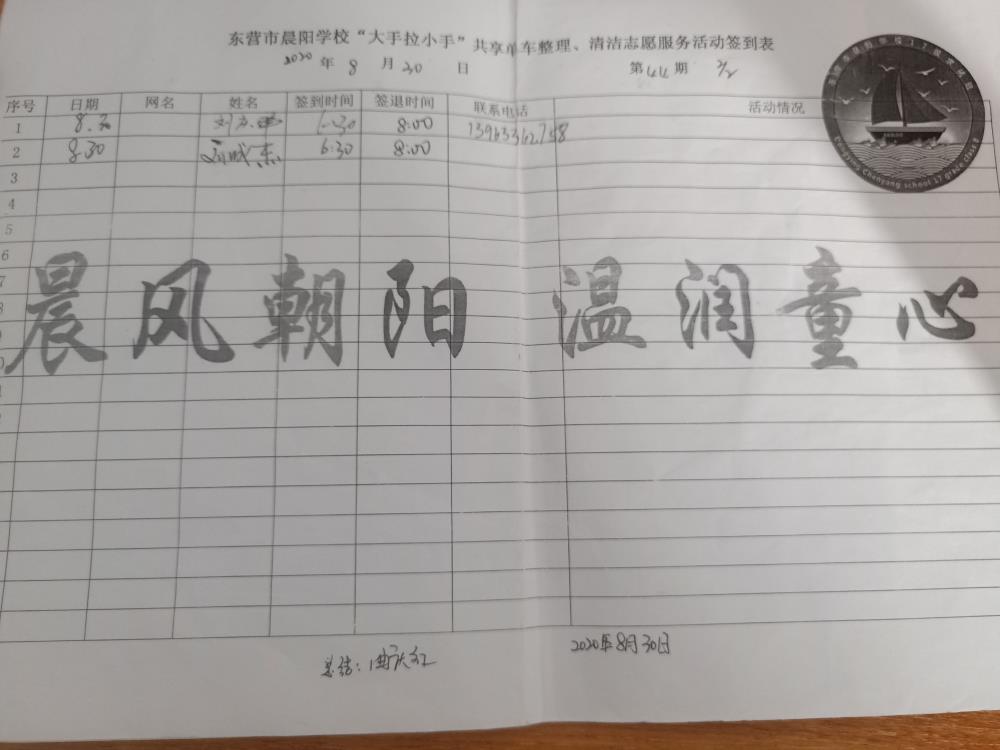 东营市晨阳学校“大手拉小手”共享单车整理、清洁志愿服务活动签到表
2020 年 8 月 30 日 第 44 期 2/2
序号 日期 网名 姓名 签到时间 签退时间 联系电话 活动情况
1 8.30 6:30 8:00
2 8.30 6:30 8:00
3
4
5
6
7
8
晨风朝阳 温润童心
Dongying Chenyang school 17 grade class 8
总结:曲庆红 2020年8月30日